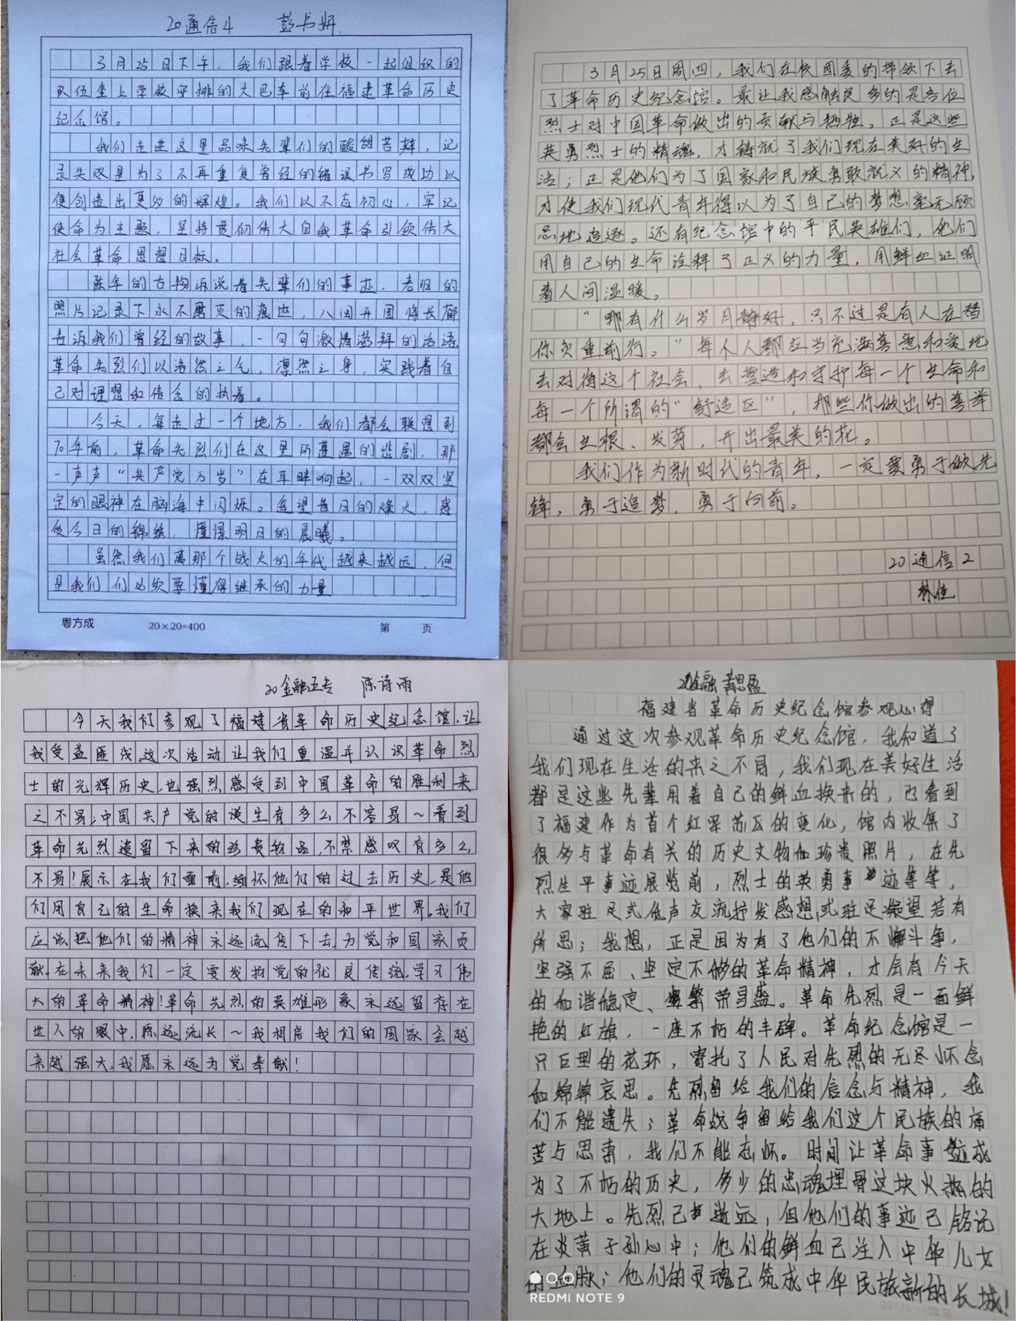 20通信4 彭书妍
3月25日下午，我们跟着学校一起组织的
队伍坐上学校安排的大巴车前往福建革命历史
纪念馆。
我们走进这里品味先辈们的酸甜苦辣，记
录失败是为了不再重复曾经的错误书写成功以
便创造出更多的辉煌。我们以不忘初心，牢记
使命为主题，坚持党的伟大自我革命引领伟大
社会革命思想目标。
陈年的古物诉说着先辈们的事迹，老旧的
照片记录下永不磨灭的痕迹，八闽开国将长廊
告诉我们曾经的故事，一句句激情澎湃的话语
革命先烈们以浩然之气，凛然之身，实践着自
己对理想和信念的执着。
今天，每走过一个地方，我们都会联想到
70年前，革命先烈们在这里所遭遇的悲剧，那
一声声“共产党万岁”在耳畔响起，一双双坚
定的眼神在脑海中闪烁。遥望昔日的烽火，感
受今日的锦绣，憧憬明日的晨曦。
虽然我们离那个战火的年代越来越远，但
是我们们必须要懂得继承的力量
粤方成 20×20=400 第 页
3月25日周四，我们在校团委的带领下去
了革命历史纪念馆。最让我感触良多的是各位
烈士对中国革命做出的贡献与牺牲。正是这些
英勇烈士的精魂，才铸就了我们现在美好的生
活；正是他们为了国家和民族勇敢就义的精神，
才使我们现代青年得以为了自己的梦想毫无顾
忌地追逐。还有纪念馆中的平民英雄们，他们
用自己的生命诠释了正义的力量，用鲜血证明
着人间温暖。
“哪有什么岁月静好，只不过是有人在替
你负重前行。”每个人都在当充满善意和爱地
去对待这个社会，去营造和守护每一个生命和
每一个所谓的“舒适区”，那些你做出的善举
都会生根、发芽，开出最美的花。
我们作为新时代的青年，一定要勇于做先
锋，勇于追梦，勇于向前。
20通信2
林佳
20金融五专 陈诗雨
今天我们参观了福建省革命历史纪念馆，让
我受益匪浅，这次活动让我们重温并认识革命烈
士的光辉历史，也强烈感受到中国革命的胜利来
之不易，中国共产党的诞生有多么不容易～看到
革命先烈遗留下来的珍贵物品，不禁感叹有多么
不易！展示在我们面前，缅怀他们的过去历史，是他
们用自己的生命换来我们现在的和平世界。我们
应该把他们的精神永远流传下去，为党和国家贡
献，在未来我们一定要发扬党的优良传统，学习伟
大的革命精神！革命先烈的英雄形象永远留存在
世人的眼中，源远流长～我相信我们的国家会越
来越强大，我愿永远为党奉献！
金融 黄思盈
福建省革命历史纪念馆参观心得
通过这次参观革命历史纪念馆，我知道了
我们现在生活的来之不易，我们现在美好生活
都是这些先辈用着自己的鲜血换来的，也看到
了福建作为首个红军的变化，馆内收集了
很多与革命有关的历史文物和珍贵照片，在先
烈生平事迹展览前，烈士的英勇事迹等等，
大家驻足或低声交流抒发感想或驻足凝望若有
所思；我想，正是因为有了他们的不懈斗争，
坚强不屈、坚定不移的革命精神，才会有今天
的和谐稳定、繁荣昌盛。革命先烈是一面鲜
艳的红旗，一座不朽的丰碑。革命纪念馆是一
只巨型的花环，寄托了人民对先烈的无尽怀念
和绵绵哀思。先烈留给我们的信念与精神，我
们不能遗失；革命战争留给我们这个民族的痛
苦与思索，我们不能忘怀。时间让革命事迹成
为了不朽的历史，多少的忠魂埋骨这块火热的
大地上。先烈已逝远，但他们的事迹已铭记
在炎黄子孙心中；他们的鲜血已注入中华儿女
的血脉；他们的灵魂已筑成中华民族新的长城！
REDMI NOTE 9